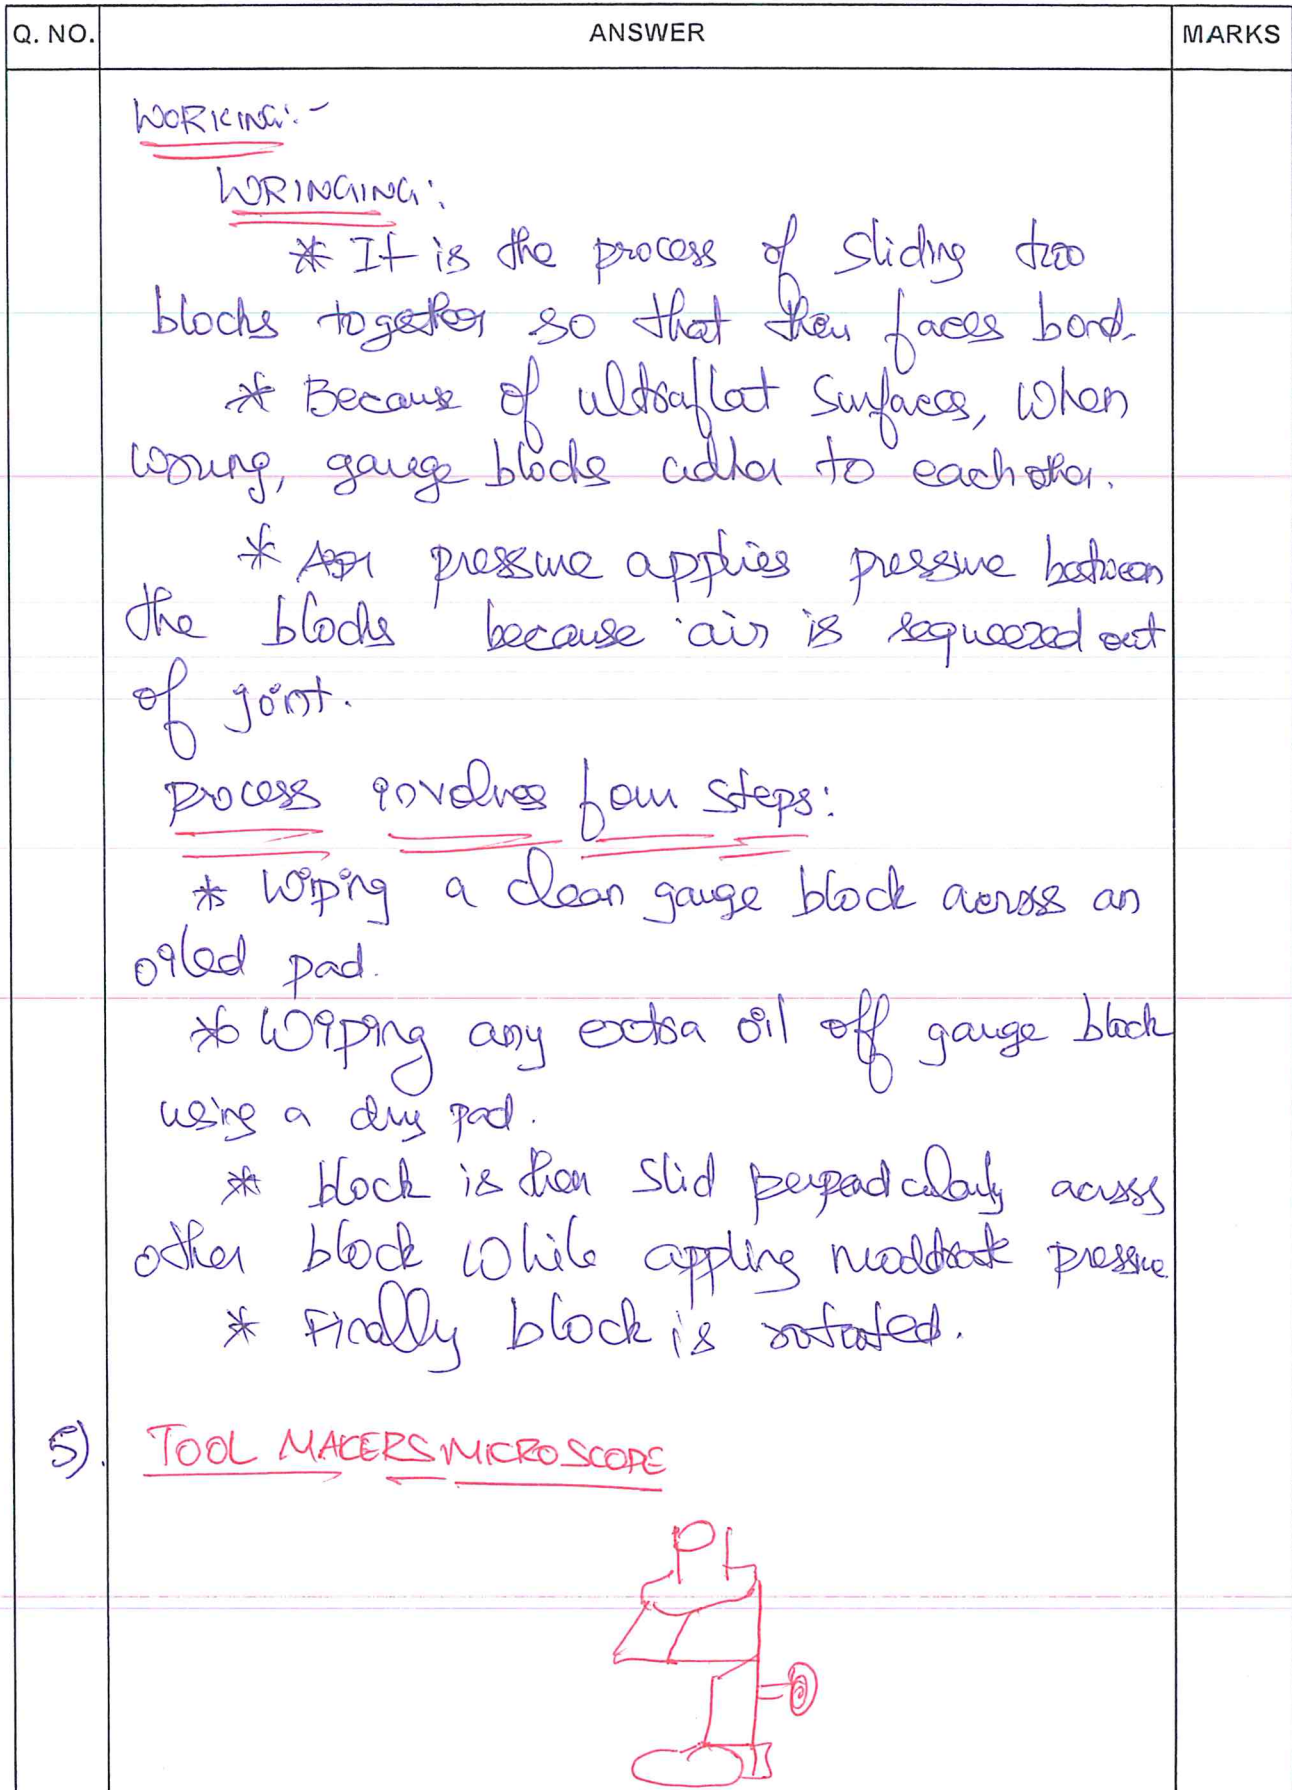 Q. NO. ANSWER MARKS
WORKING:-
WRINGING:
* It is the process of sliding two
blocks together so that their faces bond.
* Because of ultraflat surfaces, when
wrung, gauge blocks adher to each other.
* pressure applies pressure between
the blocks because air is sequeezed out
of joint.
process involves four steps:
* Wiping a clean gauge block across an
oiled pad.
* Wiping any extra oil off gauge block
using a dry pad.
* block is then slid across
other block while appling pressure
* Finally block is rotated.
5). TOOL MACERS MICROSCOPE